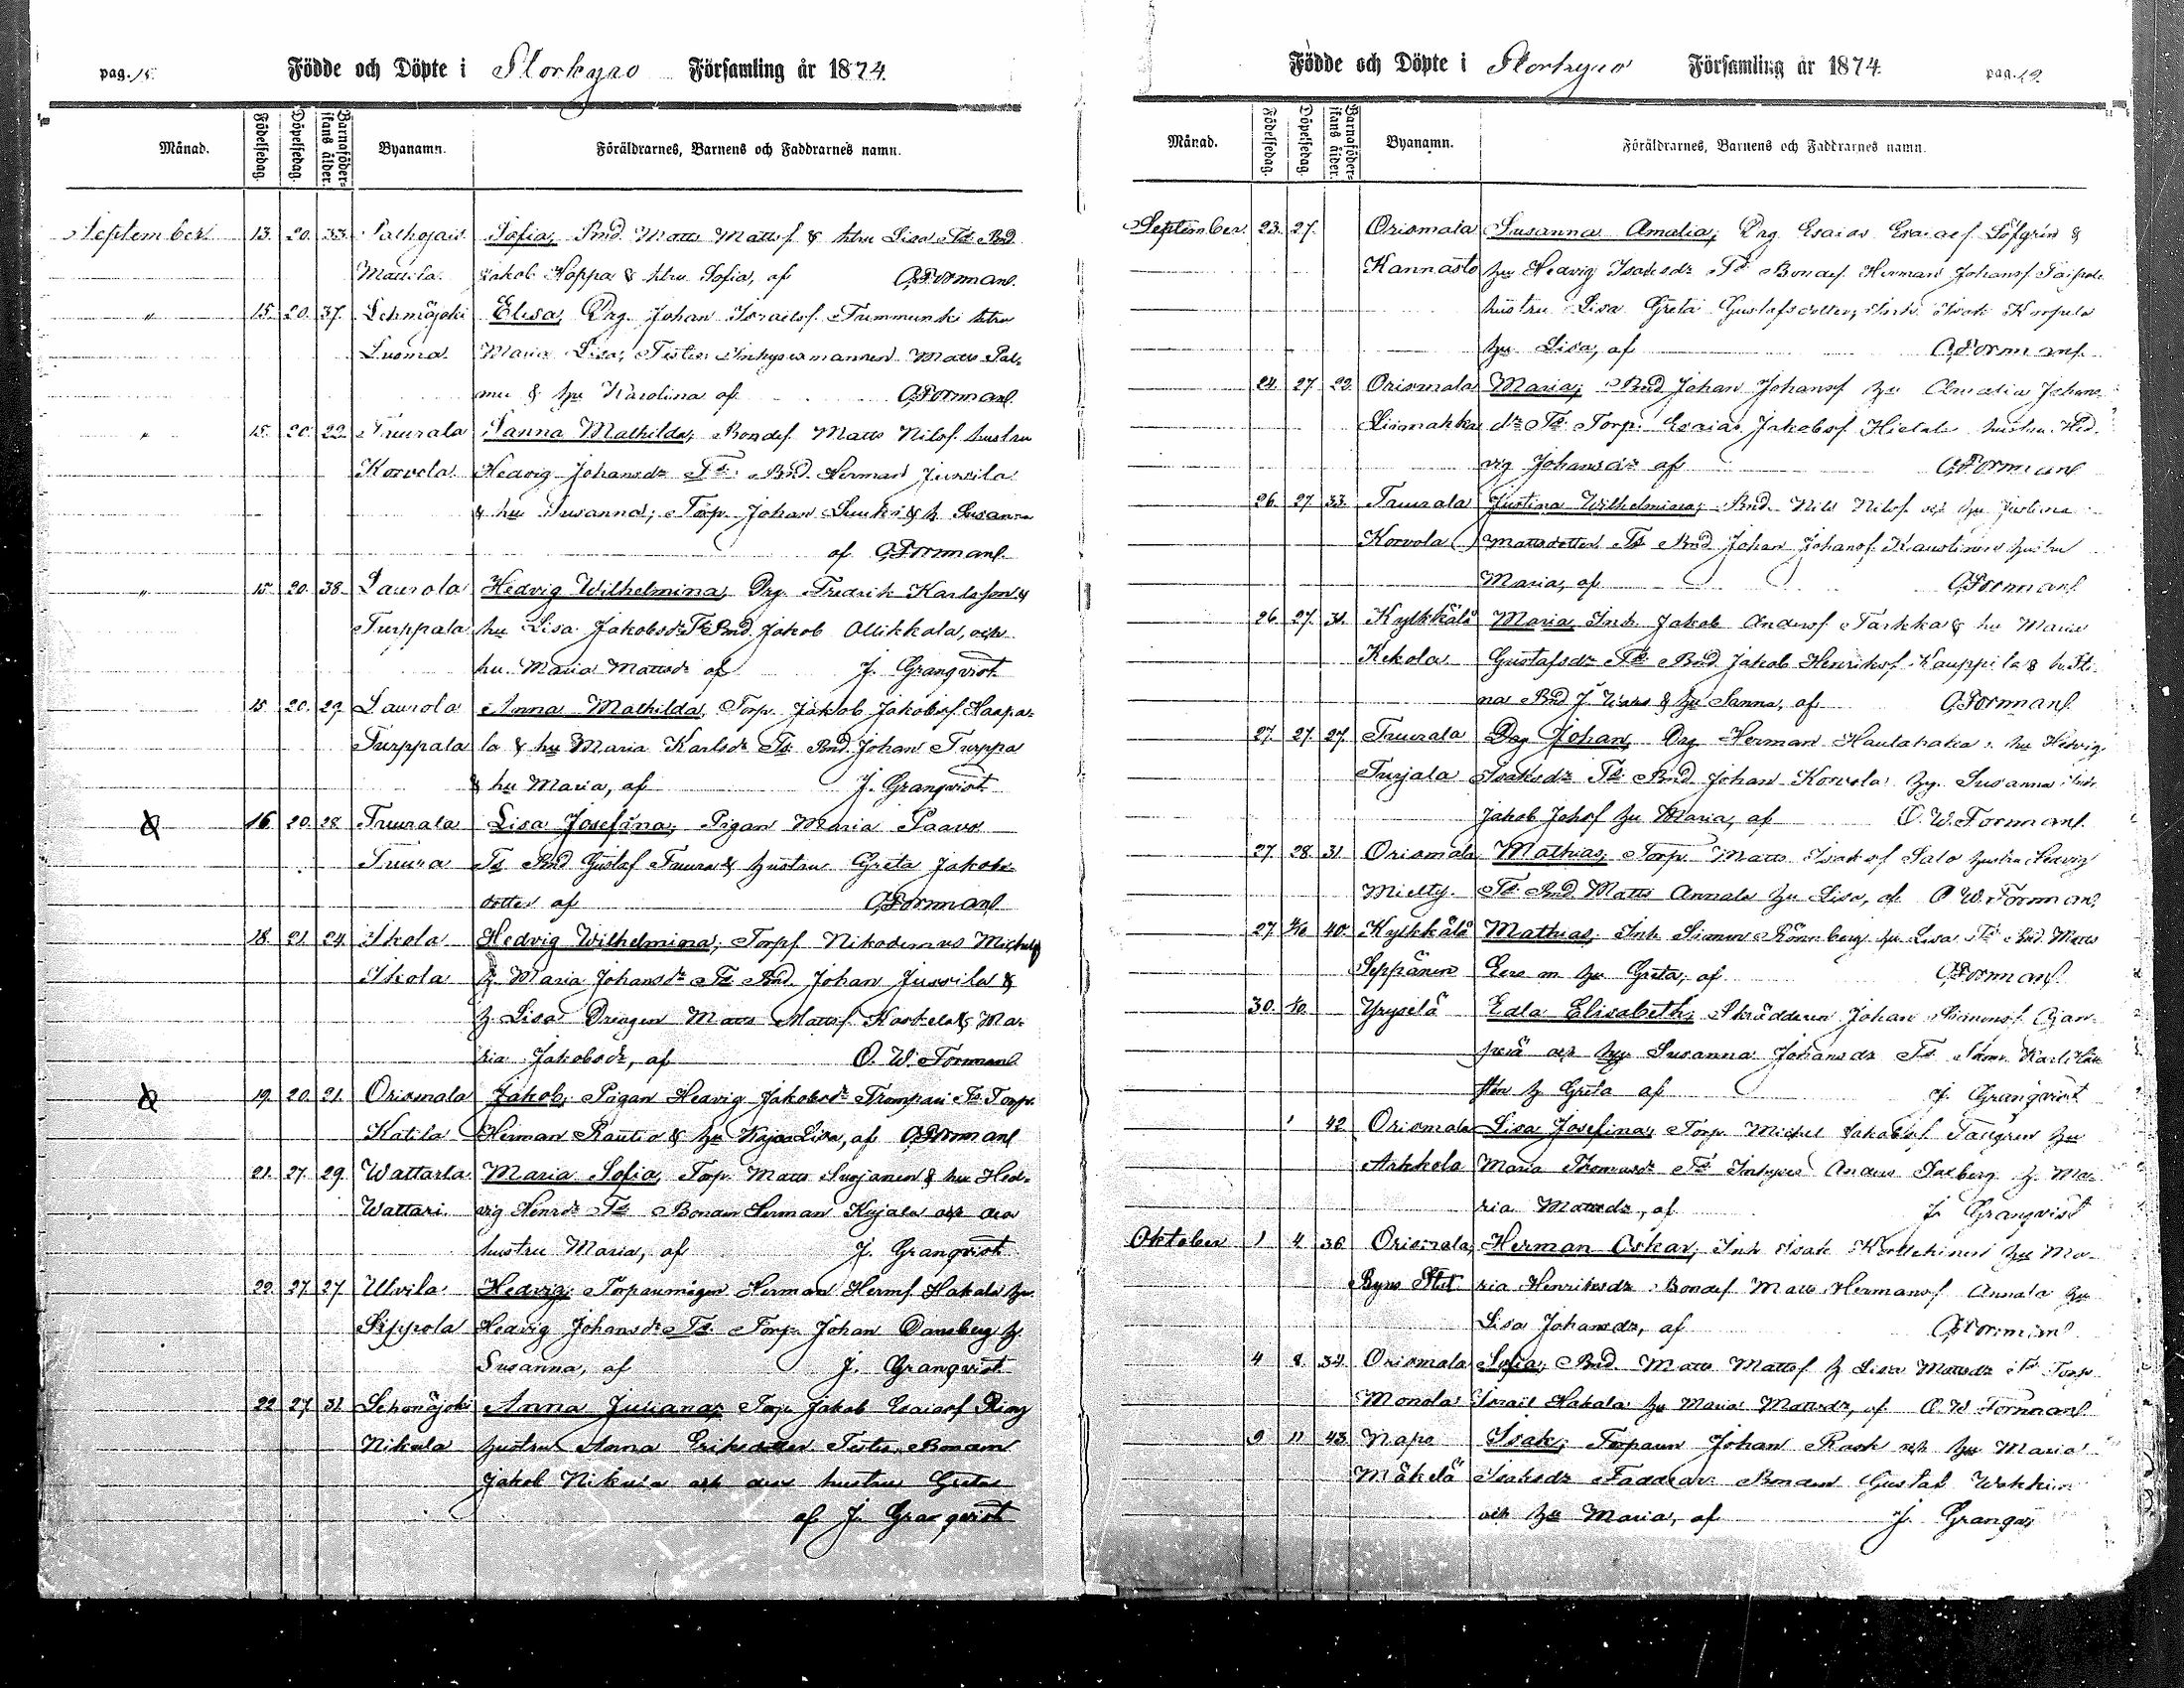 pag. 18.
Födde och Döpte i Storkyro Församling år 1874.
Månad. Födelsedag. Döpelsedag. Barnaföderskans ålder. Byanamn. Föräldrarnes, Barnens och Faddrarnes namn.
September 13. 20. 33. Palhojais Sofia, Bnd. Matts Mattsf & htru Lisa Ts Bnd
Mattila. Jakob Hoppa & htru Sofia, af O,Forman.
" 15. 20. 37. Lehmäjoki Elisa, Drg. Johan Israelsf. Tummunki htru
Luoma. Maria Lisa, Testes Inhysesmannen Matts Pal-
mu & hu Karolina af O,Forman.
" 15. 20. 22. Tuurala Sanna Mathilda, Bondes. Matts Nilsf. hustru
Korvola. Hedvig Johansdr Ts. Bnd. Herman Jussila
& hu Susanna; Torp. Johan Luuki & h. Susanna
af O,Forman.
" 15 20. 38. Laurola Hedvig Wilhelmina, Drg. Fredrik Karlsson &
Turppala hu Lisa Jakobsdr Ts Bnd. Jakob Ollikkala, och
hu. Maria Mattsdr af J. Granqvist
15 20. 29. Laurola Anna Mathilda, Torp. Jakob Jakobsf. Haapa-
Turppala la & hu Maria Karlsdr Ts. Bnd. Johan Turppa
& hu Maria, af J. Granqvist
16. 20. 28 Tuurala Lisa Josefina, Pigan Maria Paavo
Tuura Ts Bnd Gustaf Tuura & hustru Greta Jakobs-
dotter af O,Forman
18. 21. 24. Ikola Hedvig Wilhelmina, Torpf Nikodemus Michelsf
Ikola h. Maria Johansdr Ts. Bnd. Johan Jussila &
h. Lisa Drängen Matts Mattsf. Koskela & Ma-
ria Jakobsdr, af O. W. Forman
19. 20. 21. Orismala Jakob, Pigan Hedvig Jakobsdr Trompari Ts. Torp.
Katila Herman Rautio & hu Kajsa Lisa, af O,Forman
21. 27. 29. Wattarla Maria Sofia, Torp. Matts Suojanen & hu Hed-
Wattari vig Henrdr Ts Bonden Herman Kujala och dess
hustru Maria, af J. Granqvist
22. 27 27 Ulvila Hedvig, Torparemågen Herman Hermf Hakala hu.
Sippola Hedvig Johansdr Ts. Torp. Johan Dansberg h.
Susanna, af J. Granqvist
22 27 31. Lehmäjoki Anna Juliana, Torp. Jakob Esaiasf Ring
Nikula hustru Anna Eriksdotter Testes Bonden
Jakob Nikula och dess hustru Greta
af J. Granqvist
pag. 19.
Födde och Döpte i Storkyro Församling år 1874.
Månad. Födelsedag. Döpelsedag. Barnaföderskans ålder. Byanamn. Föräldrarnes, Barnens och Faddrarnes namn.
September. 23. 27. Orismala Susanna Amalia, Drg Esaias Esaiasf. Löfgrén &
Kannasto hu Hedvig Isaksdr Ts Bondes. Herman Johansf
hustru Lisa Greta Gustafsdotter, Inh. Isak Korpela
hu Lisa, af O,Forman.
24. 27. 22. Orismala Maria, Bnd Johan Johansf hu Amalia Johans-
Liimakka dr Ts. Torp. Esaias Jakobsf Hietala hustru Hed-
vig Johansdr af O,Forman
26. 27 33. Tuurala Justina Wilhelmina, Bnd. Nils Nilsf och hu Justina
Korvola Mattsdotter Ts Bnd Johan Johansf. hustru
Maria, af O,Forman
26. 27. 31. Kylkkälä Maria Inh. Jakob Andersf Tarkka & hu Maria
Kekola. Gustafsdr Ts. Bnd Jakob Henriksf Kauppila & h. Sti-
na Bnd J. & hu Sanna, af O,Forman.
27. 27. 27. Tuurala Drg Johan, Drg Herman Hautahaka, hu Hedvig
Turjala Isaksdr Ts Bnd Johan Korvola hu. Susanna Inh.
Jakob Johsf hu Maria, af O. W. Forman.
27 28 31. Orismala Mathias, Torp. Matts Isaksf Salo hustru Hedvig
Mielty. Ts. Bnd. Matts Annala hu Lisa, af O W. Forman.
27. 4/10 40. Kylkkälä Mathias, Inh Simon Rönnberg hu Lisa Ts Bnd. Matts
Seppänen hu Greta, af O,Forman.
30. 4/10. Yryselä Edla Elisabeth, Skräddaren Johan Simonsf.
och hu Susanna Johansdr Ts Karl
h Greta af J. Granqvist
1 42 Orismala Lisa Josefina, Torp. Michel Jakobsf hu
Arkkola Maria Thomasdr Ts Inhyses Anders h. Ma-
ria Mattsdr, af J. Granqvist
Oktober 1 4 36 Orismala Herman Oskar, Inh Isak hu Ma-
ria Henriksdr Bondes Matts Hermansf Annala hu
Lisa Johansdr, af O,Forman
4 8. 34. Orismala Sofia, Bnd. Matts Mattsf h Lisa Mattsdr Ts Torp
Monola Israel Hakala hu Maria Mattsdr, af O. W Forman
9 11 43. Napo Isak, Torparen Johan Rask och hu Maria
Mäkelä Isaksdr Faddrar Bonden Gustaf
och hu Maria, af J. Granqvi